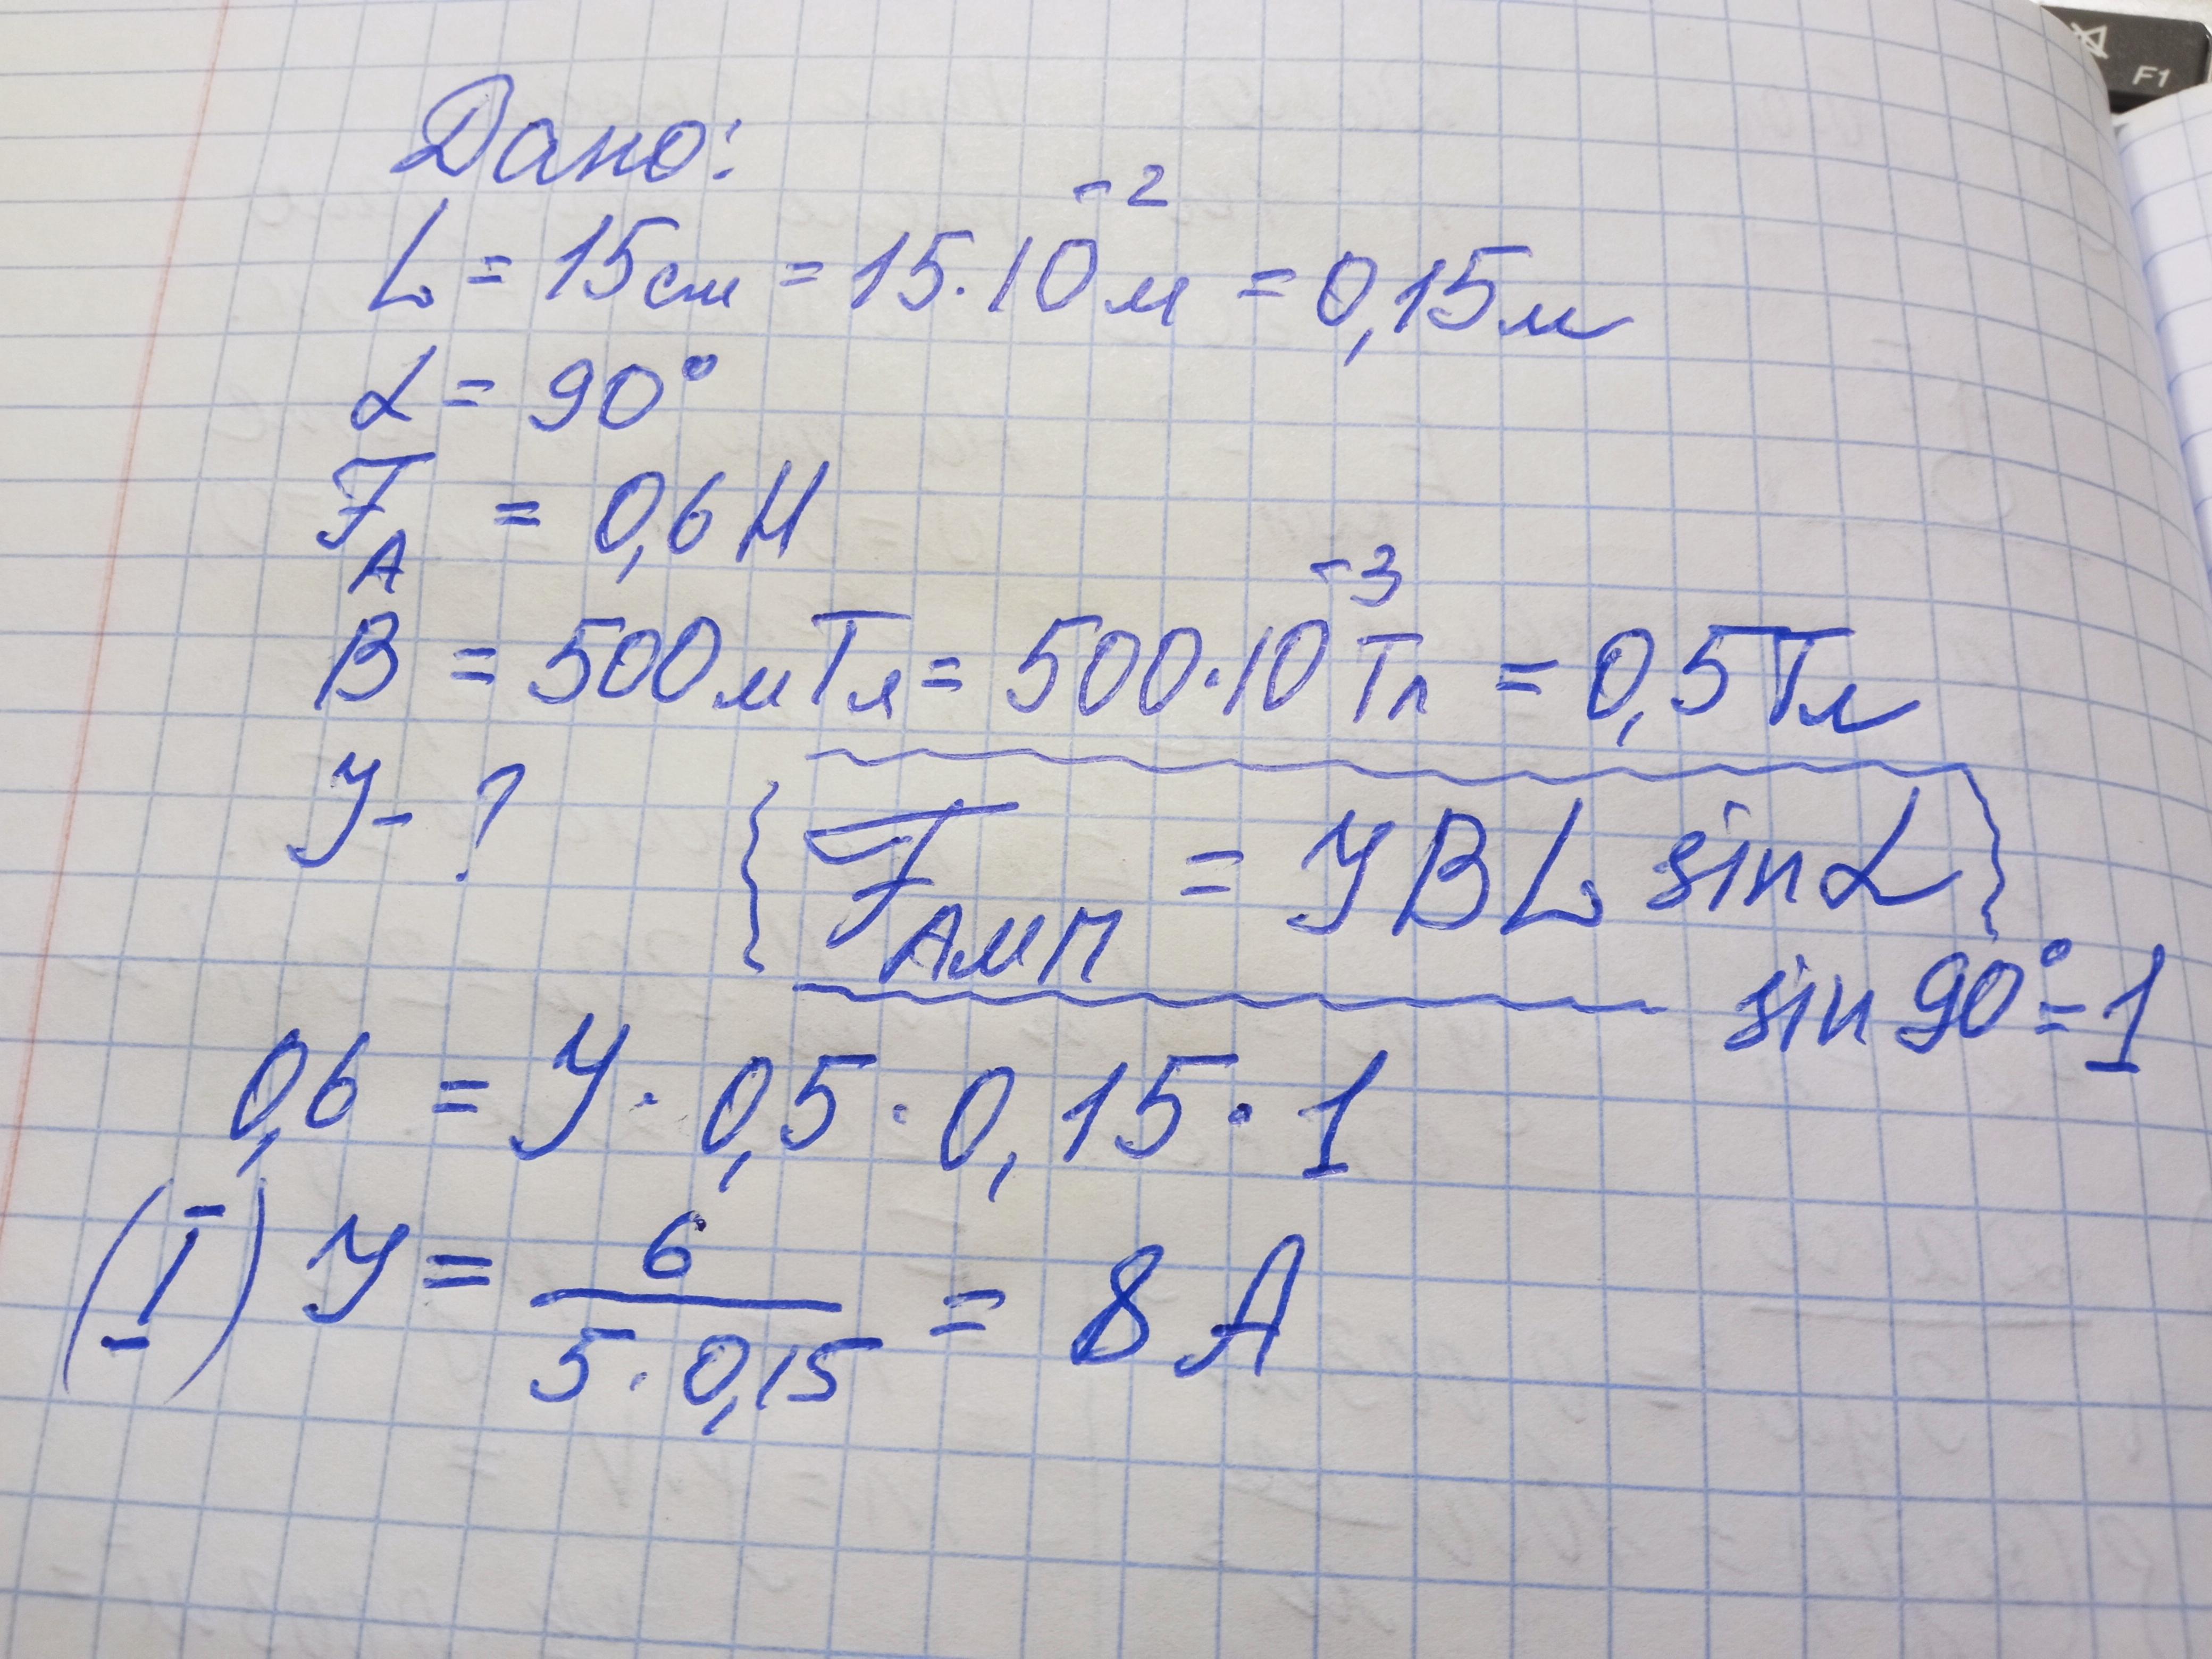 Дано:
L = 15 см = 15 · 10⁻² м = 0,15 м
α = 90°
F_A = 0,6 Н
B = 500 мТл = 500 · 10⁻³ Тл = 0,5 Тл
У - ?
{ F_Амп = У B L sin α }
sin 90° = 1
0,6 = У · 0,5 · 0,15 · 1
(I) У = 6 / (5 · 0,15) = 8 А
F1